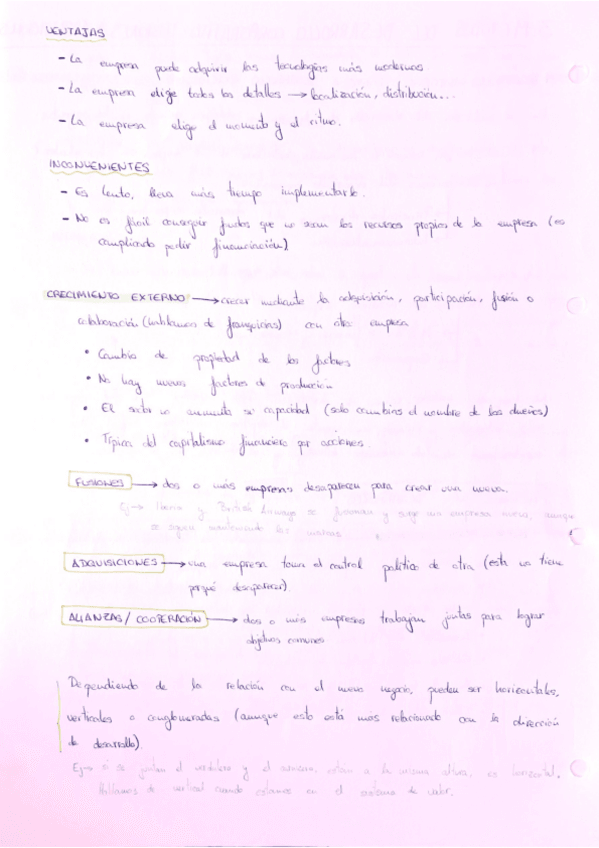 VENTAJAS
- La empresa puede adquirir las tecnologías más modernas
- La empresa elige todos los detalles → localización, distribución...
- La empresa elige el momento y el ritmo.
INCONVENIENTES
- Es lento, lleva más tiempo implementarlo.
- No es fácil conseguir fondos que no sean los recursos propios de la empresa (es
complicado pedir financiación)
CRECIMIENTO EXTERNO → crecer mediante la adquisición, participación, fusión o
colaboración (hablamos de franquicias) con otra empresa
• Cambio de propiedad de los factores
• No hay nuevos factores de producción
• El sector no aumenta su capacidad (solo cambia el nombre de los dueños)
• Típica del capitalismo financiero por acciones.
FUSIONES → dos o más empresas desaparecen para crear una nueva.
Ej → Iberia y British Airways se fusionan y surge una empresa nueva, aunque
se siguen manteniendo las marcas.
ADQUISICIONES → una empresa toma el control político de otra (esta no tiene
porqué desaparecer)
ALIANZAS / COOPERACIÓN → dos o más empresas trabajan juntas para lograr
objetivos comunes
Dependiendo de la relación con el nuevo negocio, pueden ser horizontales,
verticales o conglomeradas (aunque esto está más relacionado con la dirección
de desarrollo).
Ej → si se juntan el y el están a la misma altura, es horizontal.
Hablamos de vertical cuando estamos en el sistema de valor.